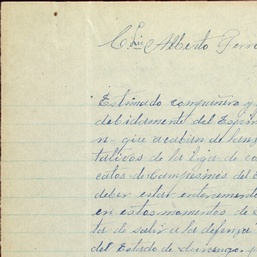 C. Lic. Alberto Terro
Estimado compañero y
debidamente del Espír
n que acaban de hace
tativos de la Liga de co
catos de Campesinos del E
deber estar enteramente
en estos momentos de
ta de salir a la defensa
del Estado de Durango, p